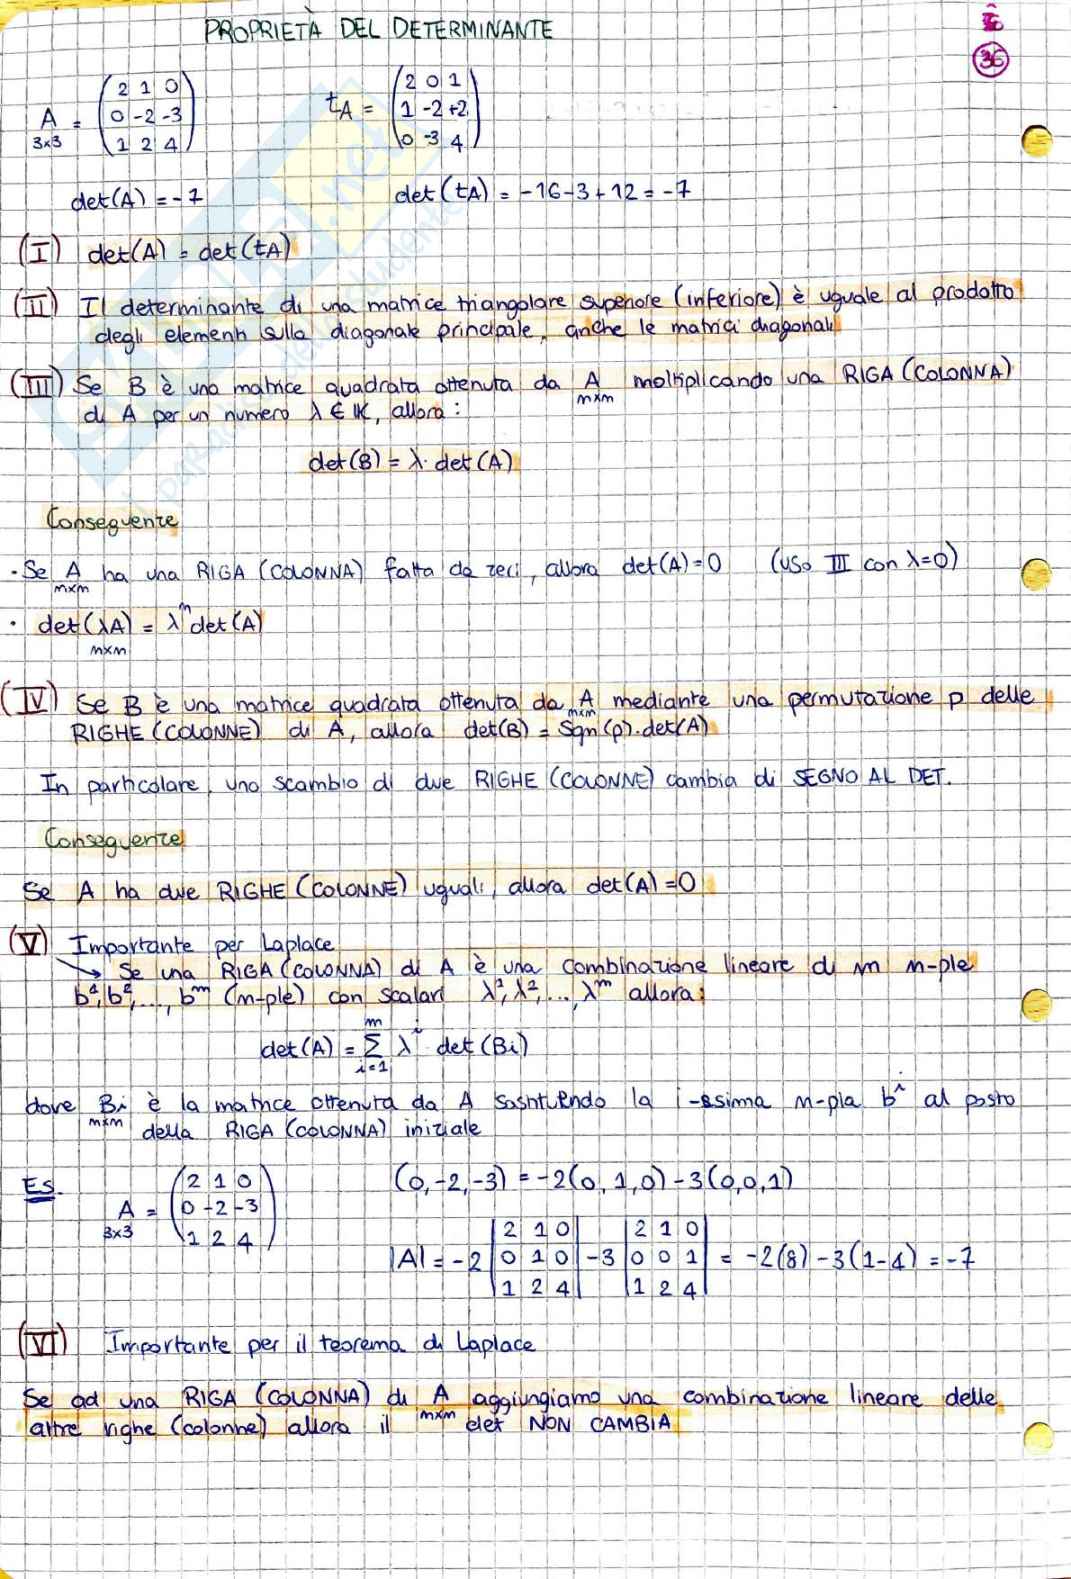 PROPRIETÀ DEL DETERMINANTE
36
A = (2 1 0
0 -2 -3
1 2 4)
3x3
tA = (2 0 1
1 -2 +2
0 -3 4)
det(A) = -7
det(tA) = -16-3+12 = -7
(I) det(A) = det(tA)
(II) Il determinante di una matrice triangolare superiore (inferiore) è uguale al prodotto
degli elementi sulla diagonale principale, anche le matrici diagonali
(III) Se B è una matrice quadrata ottenuta da A moltiplicando una RIGA (COLONNA)
mxm
di A per un numero λ ∈ K, allora:
det(B) = λ · det(A)
Conseguenze
· Se A ha una RIGA (COLONNA) fatta da zeri, allora det(A) = 0 (uso III con λ=0)
mxm
· det(λA) = λᵐ det(A)
mxm
(IV) Se B è una matrice quadrata ottenuta da A mediante una permutazione p delle
mxm
RIGHE (COLONNE) di A, allora det(B) = Sgn(p)·det(A)
In particolare, uno scambio di due RIGHE (COLONNE) cambia di SEGNO AL DET.
Conseguenze
Se A ha due RIGHE (COLONNE) uguali, allora det(A) = 0
(V) Importante per Laplace
→ Se una RIGA (COLONNA) di A è una combinazione lineare di m m-ple
b¹, b², ..., bᵐ (m-ple) con scalari λ¹, λ², ..., λᵐ allora:
det(A) = Σ λⁱ · det(Bi)
m
i=1
dove Bi è la matrice ottenuta da A sostituendo la i-esima m-pla bⁱ al posto
mxm
della RIGA (COLONNA) iniziale
ES.
A = (2 1 0
0 -2 -3
1 2 4)
3x3
(0,-2,-3) = -2(0,1,0) -3(0,0,1)
|A| = -2 |2 1 0
0 1 0
1 2 4| -3 |2 1 0
0 0 1
1 2 4| = -2(8) -3(1-4) = -7
(VI) Importante per il teorema di Laplace
Se ad una RIGA (COLONNA) di A aggiungiamo una combinazione lineare delle
mxm
altre righe (colonne) allora il det NON CAMBIA